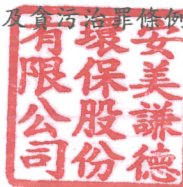 及貪污治罪條例
安美謙德
環保股份
有限公司